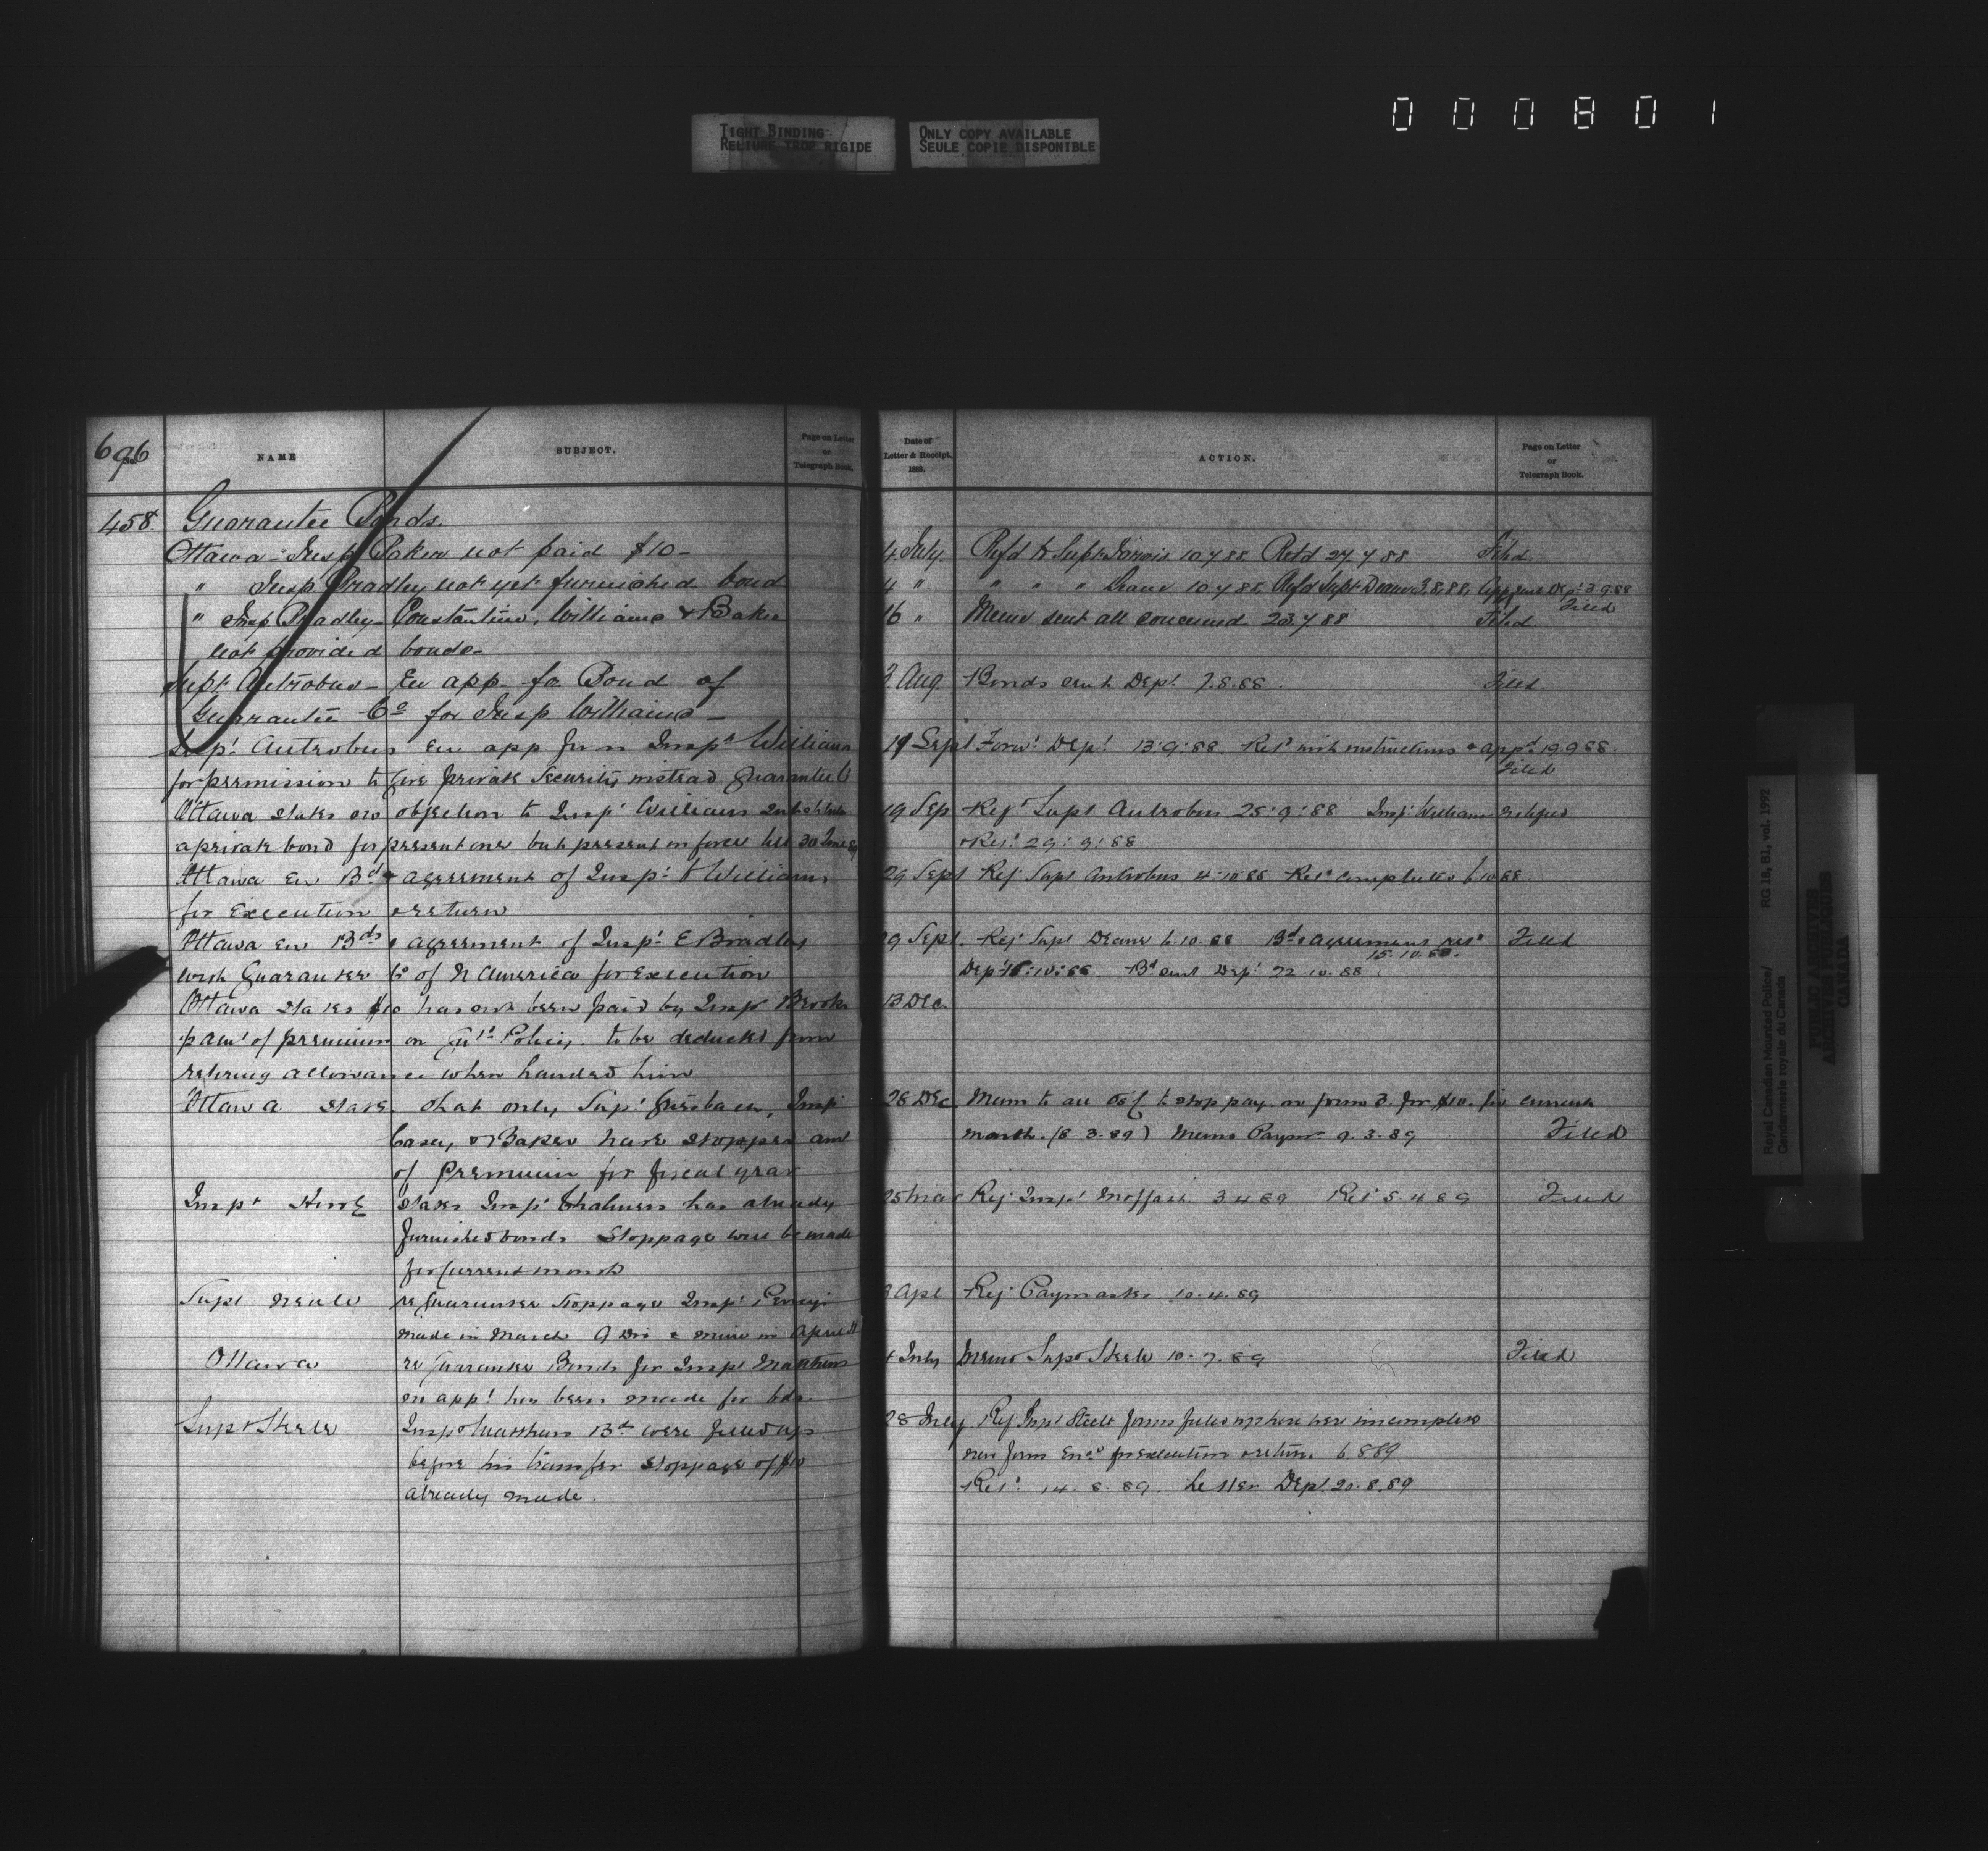 000801
TIGHT BINDING
RELIURE TROP RIGIDE
ONLY COPY AVAILABLE
SEULE COPIE DISPONIBLE
696
No.
NAME
SUBJECT.
Page on Letter
or
Telegraph Book.
458 Guarantee Bonds.
Ottawa - Insp Baker not paid $10-
" Insp Bradley not yet furnished bond
" Insp Bradley - Constantine, Williams & Baker
not provided bonds-
Supt Antrobus - En app. for Bond of
Guarantee Co for Insp Williams -
Supt. Antrobus En app from Inspt Williams
for permission to give private security instead Guarantee Co
Ottawa states no objection to Insp. Williams substitute
a private bond for present one but present in force till 30 June 89
Ottawa En Bd & agreement of Insp. Williams
for Execution & return
Ottawa En Bds & agreement of Insp. E Bradley
with Guarantee Co of N America for Execution
Ottawa states $10 has not been paid by Insp Brooks
pamt of premium on Policy. to be deducted from
retiring allowance when handed him
Ottawa states that only Supt Griesbach, Insp
Casey, & Baker have stopped amt
of Premium for fiscal year
Inspt Howe states Insp. Chalmers has already
furnished bonds Stoppage will be made
for Current month
Supt Neale re Guarantee Stoppage Insp
made in March
Ottawa re Guarantee Bonds for Inspt Matthews
on appt has been made for bds.
Supt Steele Inspt Matthews Bd were filled up
before his transfer stoppage of $10
already made.
Date of
Letter & Receipt,
188 .
ACTION.
Page on Letter
or
Telegraph Book.
4 July. Refd to Supt Jarvis 10.7.88. Retd 27.7.88 Filed
4 " " " " Deane 10.7.88, Refd Supt Deane 3.8.88, App sent Dept 3.9.88
Filed
16 " Memo sent all concerned 23.7.88 Filed
2. Aug. Bonds sent Dept. 7.8.88. Filed
Sept Forwd Dept. 13:9:88. Retd with instructions & appd 19.9.88
Filed
19 Sep Refd Supt Antrobus 25:9:88 Insp. Williams notified
& Retd 29:9:88
29 Sept Ref Supt Antrobus 4:10:88 Retd completed 6.10.88
29 Sept. Ref Supt Deane 6.10.88 Bd & agreement retd Filed
15.10.88.
Dept 15:10:88 Bd sent Dept. 22.10.88
13 Dec
28 Dec Memo to all to stop pay on for $10. for current
month. (8.3.89) Memo Paymr 9.3.89 Filed
25 Mar Ref Inspt Moffatt 3.4.89 Retd 5.4.89 Filed
Apl Ref Paymaster 10.4.89
4 July Memo Supt Steele 10.7.89 Filed
28 July. Ref Supt Steele forms filled up here were incomplete
new form Encd for execution & return 6.8.89
Retd 14.8.89. Letter Dept. 20.8.89
Royal Canadian Mounted Police/
Gendarmerie royale du Canada
RG 18, B1, vol. 1992
PUBLIC ARCHIVES
ARCHIVES PUBLIQUES
CANADA